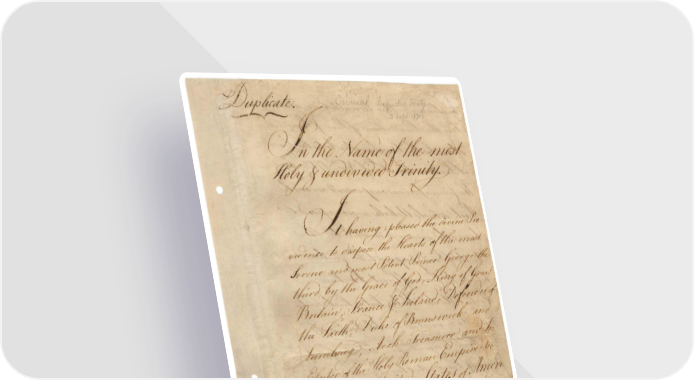 Duplicate.
In the Name of the most
Holy & undivided Trinity.
It having pleased the divine Pro
vidence to dispose the Hearts of the most
Serene and most Potent Prince George the
third, by the Grace of God, King of Great
Britain, France & Ireland, Defender of
the Faith, Duke of Brunswick and
Arch Treasurer and
of the Holy Roman Empire
States of Amer